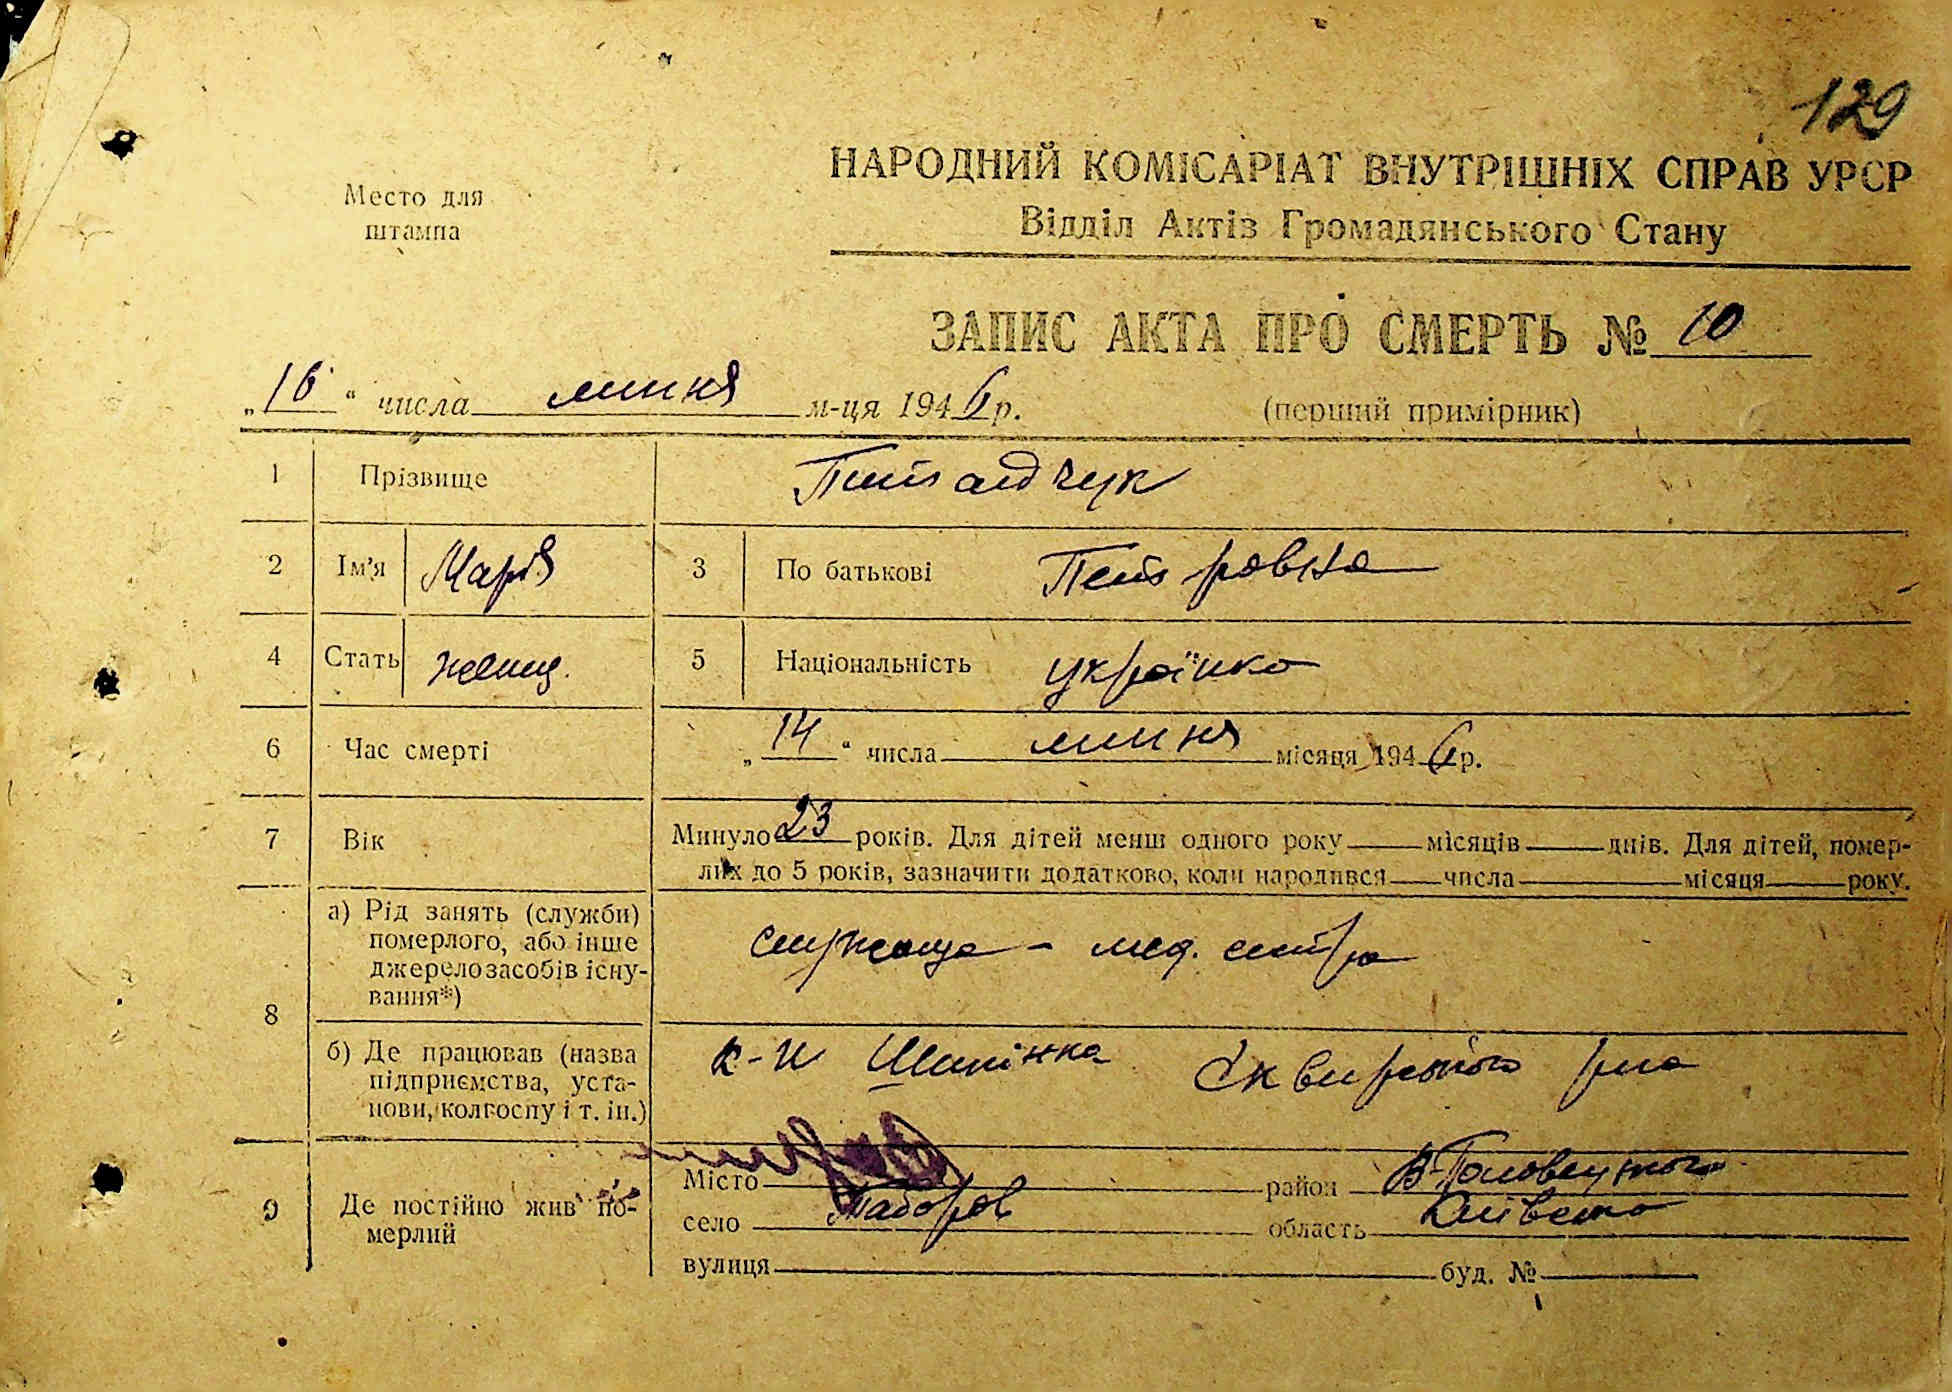 129
НАРОДНИЙ КОМІСАРІАТ ВНУТРІШНІХ СПРАВ УРСР
Место для
штампа
Відділ Актів Громадянського Стану
ЗАПИС АКТА ПРО СМЕРТЬ № 10
„16“ числа липня м-ця 1946 р.
(перший примірник)
1 Прізвище
2 Ім'я Марія 3 По батькові Петровна
4 Стать женщ. 5 Національність українка
6 Час смерті „14“ числа липня місяця 1946 р.
7 Вік Минуло 23 років. Для дітей менш одного року місяців днів. Для дітей, помер-
лих до 5 років, зазначити додатково, коли народився числа місяця року.
8 а) Рід занять (служби)
померлого, або інше
джерело засобів існу-
вання*)
служаща - мед. сестра
б) Де працював (назва
підприємства, уста-
нови, колгоспу і т. ін.)
Сквирського р-на
9 Де постійно жив по-
мерлий
Місто район В-Половецького
село Таборов область Київська
вулиця буд. №